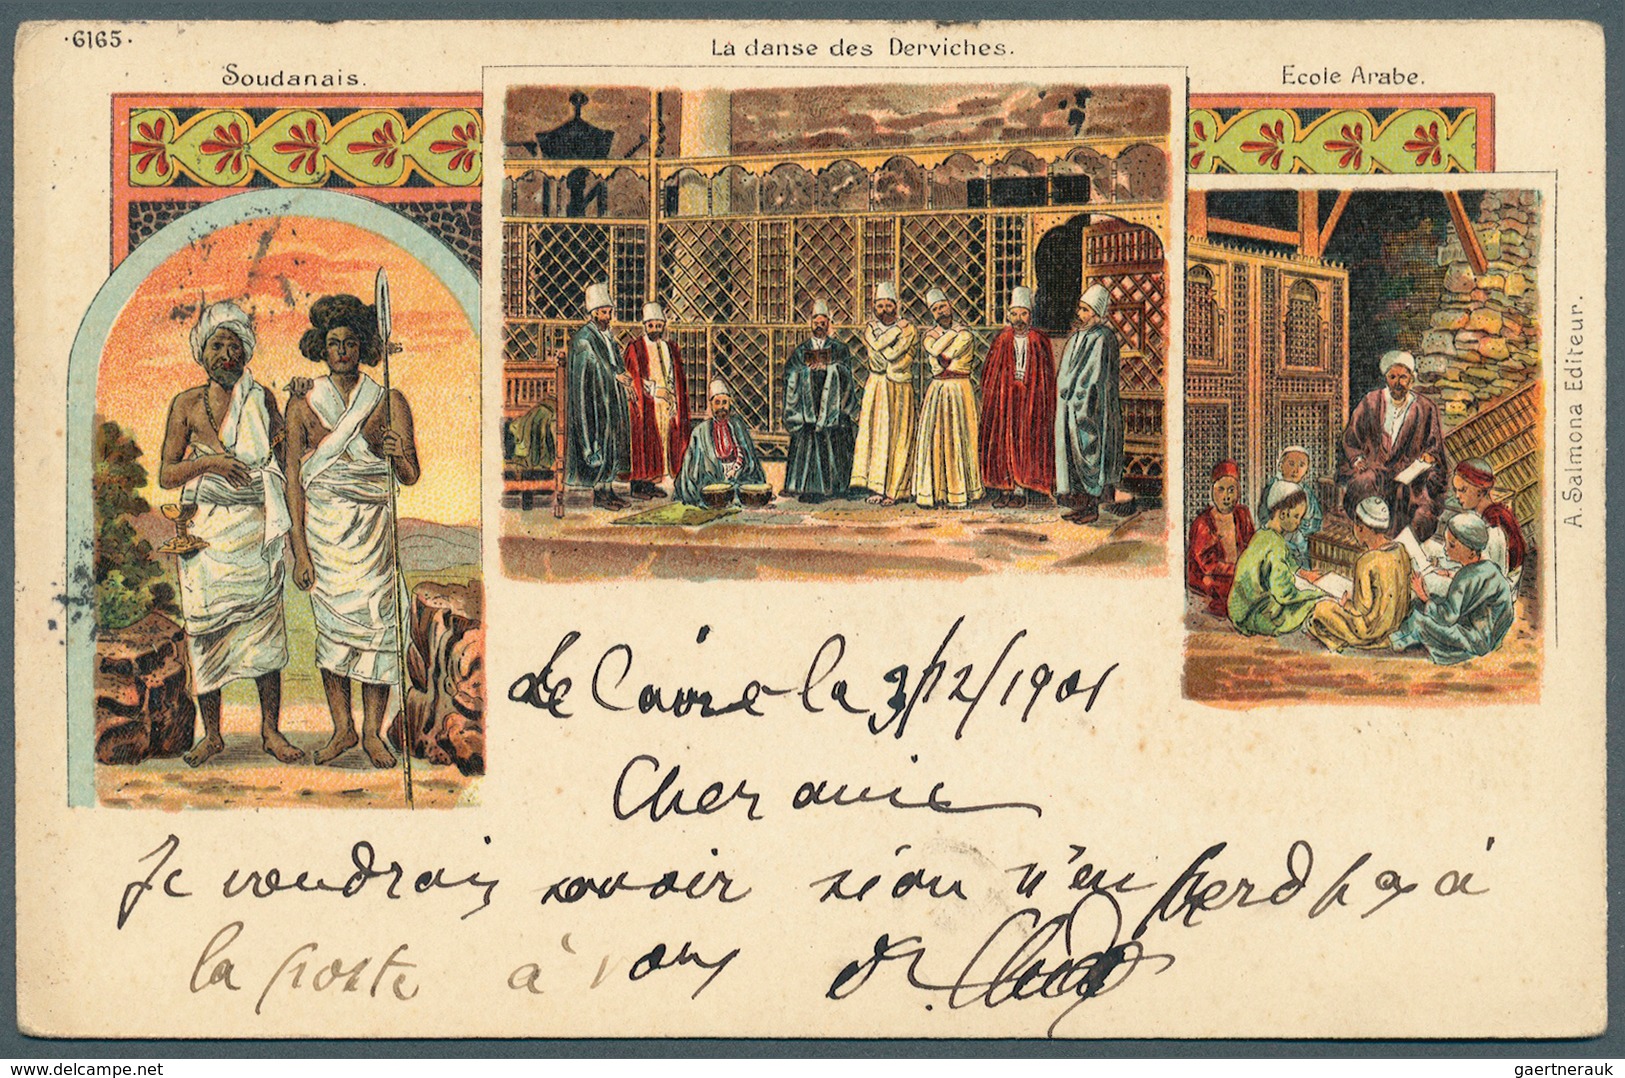 ·6165·
La danse des Derviches.
Soudanais.
Ecole Arabe.
A. Salmona Editeur.
Le Caire le 3/12/1901
Cher amie
Je voudrais savoir si on n'en perd pas à
la poste à
delcampe.net
gaertnerauk